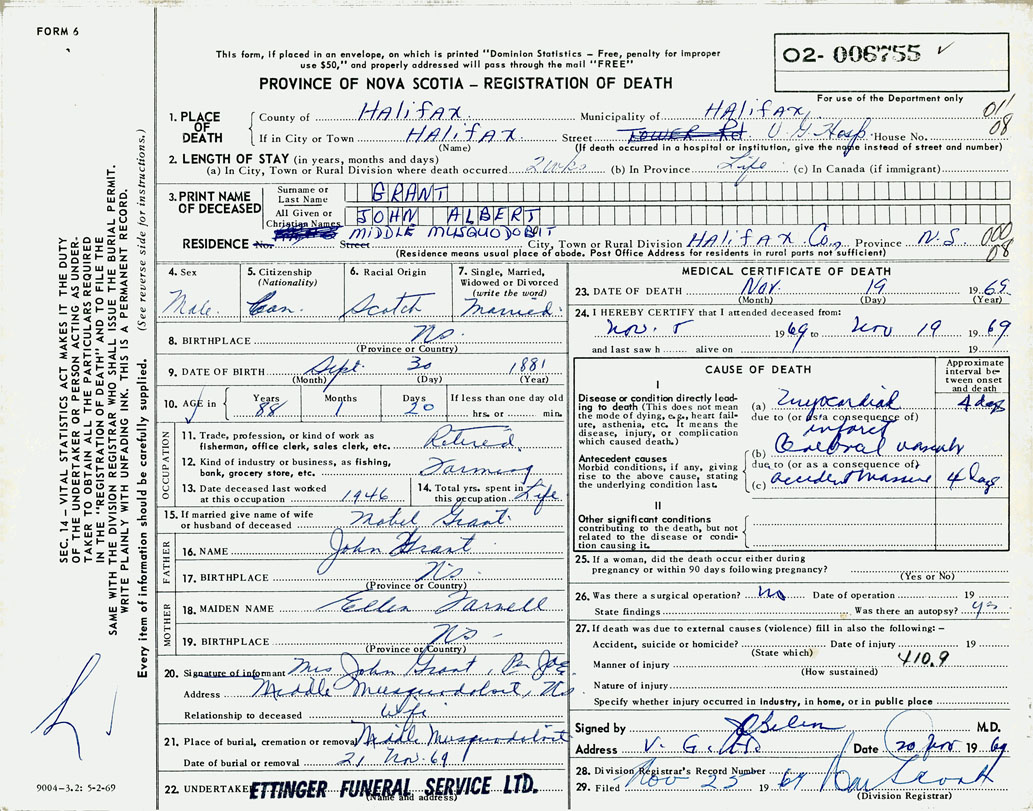 FORM 6
This form, if placed in an envelope, on which is printed "Dominion Statistics – Free, penalty for improper
use $50," and properly addressed will pass through the mail "FREE"
PROVINCE OF NOVA SCOTIA – REGISTRATION OF DEATH
02- 006755
For use of the Department only
011
08
1. PLACE OF DEATH
County of Halifax Municipality of Halifax
If in City or Town HALIFAX Street TOWER Rd. V G Hosp. House No.
(Name) (If death occurred in a hospital or institution, give the name instead of street and number)
2. LENGTH OF STAY (in years, months and days)
(a) In City, Town or Rural Division where death occurred 2 wks (b) In Province Life (c) In Canada (if immigrant)
3. PRINT NAME OF DECEASED
Surname or Last Name GRANT
All Given or Christian Names JOHN ALBERT
RESIDENCE No. Street MIDDLE MUSQUODOBIT City, Town or Rural Division Halifax Co., Province N.S.
000
08
(Residence means usual place of abode. Post Office Address for residents in rural parts not sufficient)
4. Sex Male
5. Citizenship (Nationality) Can.
6. Racial Origin Scotch
7. Single, Married, Widowed or Divorced (write the word) Married
8. BIRTHPLACE Ns
(Province or Country)
9. DATE OF BIRTH Sept. 30 1881
(Month) (Day) (Year)
10. AGE in Years 88 Months 1 Days 20 If less than one day old
hrs. or min.
OCCUPATION
11. Trade, profession, or kind of work as fisherman, office clerk, sales clerk, etc. Retired
12. Kind of industry or business, as fishing, bank, grocery store, etc. Farming
13. Date deceased last worked at this occupation 1946
14. Total yrs. spent in this occupation Life
15. If married give name of wife or husband of deceased Mabel Grant
FATHER
16. NAME John Grant
17. BIRTHPLACE Ns
(Province or Country)
MOTHER
18. MAIDEN NAME Ellen
19. BIRTHPLACE Ns
(Province or Country)
20. Signature of informant Mrs John Grant, Per
Address Middle Musquodoboit, Ns
Relationship to deceased Wife
21. Place of burial, cremation or removal Middle Musquodoboit
Date of burial or removal 21 Nov. 69
22. UNDERTAKER ETTINGER FUNERAL SERVICE LTD.
(Name and address)
MEDICAL CERTIFICATE OF DEATH
23. DATE OF DEATH Nov. 19 1969
(Month) (Day) (Year)
24. I HEREBY CERTIFY that I attended deceased from:
Nov. 5 1969 to Nov 19 1969
and last saw h alive on 19
CAUSE OF DEATH
Approximate interval between onset and death
I
Disease or condition directly leading to death (This does not mean the mode of dying, e.g., heart failure, asthenia, etc. It means the disease, injury, or complication which caused death.)
(a) Myocardial infarct 4 days
due to (or as a consequence of)
Antecedent causes
Morbid conditions, if any, giving rise to the above cause, stating the underlying condition last.
(b) Cerebral vascular
due to (or as a consequence of)
(c) accident massive 4 days
II
Other significant conditions contributing to the death, but not related to the disease or condition causing it.
25. If a woman, did the death occur either during
pregnancy or within 90 days following pregnancy?
(Yes or No)
26. Was there a surgical operation? no Date of operation 19
State findings Was there an autopsy? yes
27. If death was due to external causes (violence) fill in also the following: –
Accident, suicide or homicide? Date of injury 19
(State which)
Manner of injury 410.9
(How sustained)
Nature of injury
Specify whether injury occurred in industry, in home, or in public place
Signed by M.D.
Address V. G. Date 20 Nov 1969
28. Division Registrar's Record Number
29. Filed Nov 25 1969
(Division Registrar)
SEC. 14 – VITAL STATISTICS ACT MAKES IT THE DUTY
OF THE UNDERTAKER OR PERSON ACTING AS UNDERTAKER
TO OBTAIN ALL THE PARTICULARS REQUIRED
IN THE "REGISTRATION OF DEATH" AND TO FILE THE
SAME WITH THE DIVISION REGISTRAR WHO SHALL ISSUE THE BURIAL PERMIT.
WRITE PLAINLY WITH UNFADING INK. THIS IS A PERMANENT RECORD.
Every item of information should be carefully supplied. (See reverse side for instructions.)
9004-3.2: 5-2-69